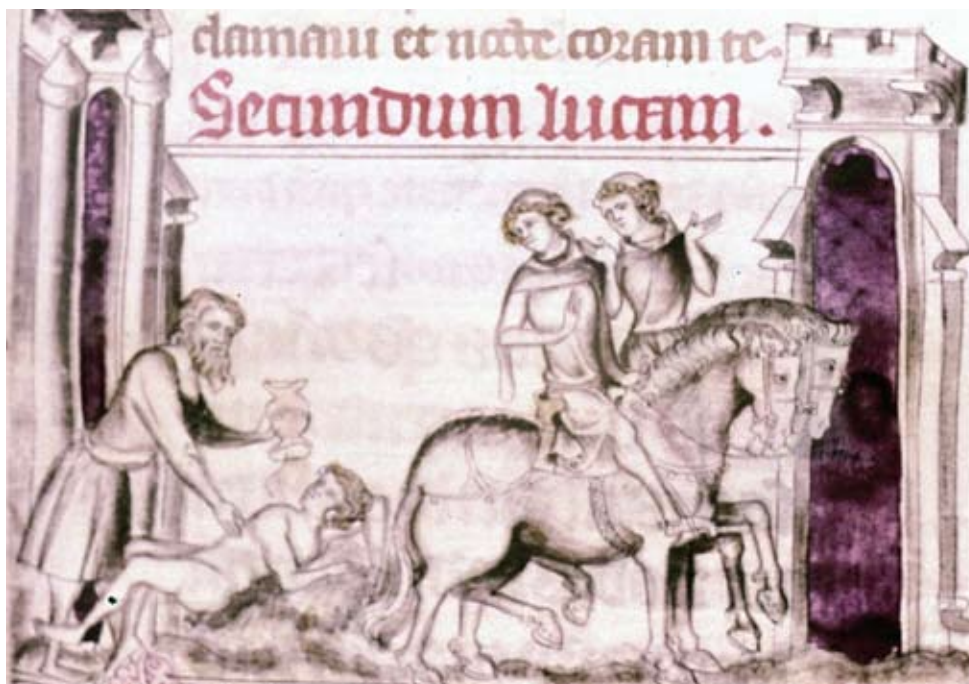 clamaui et nocte coram te.
Secundum lucam.